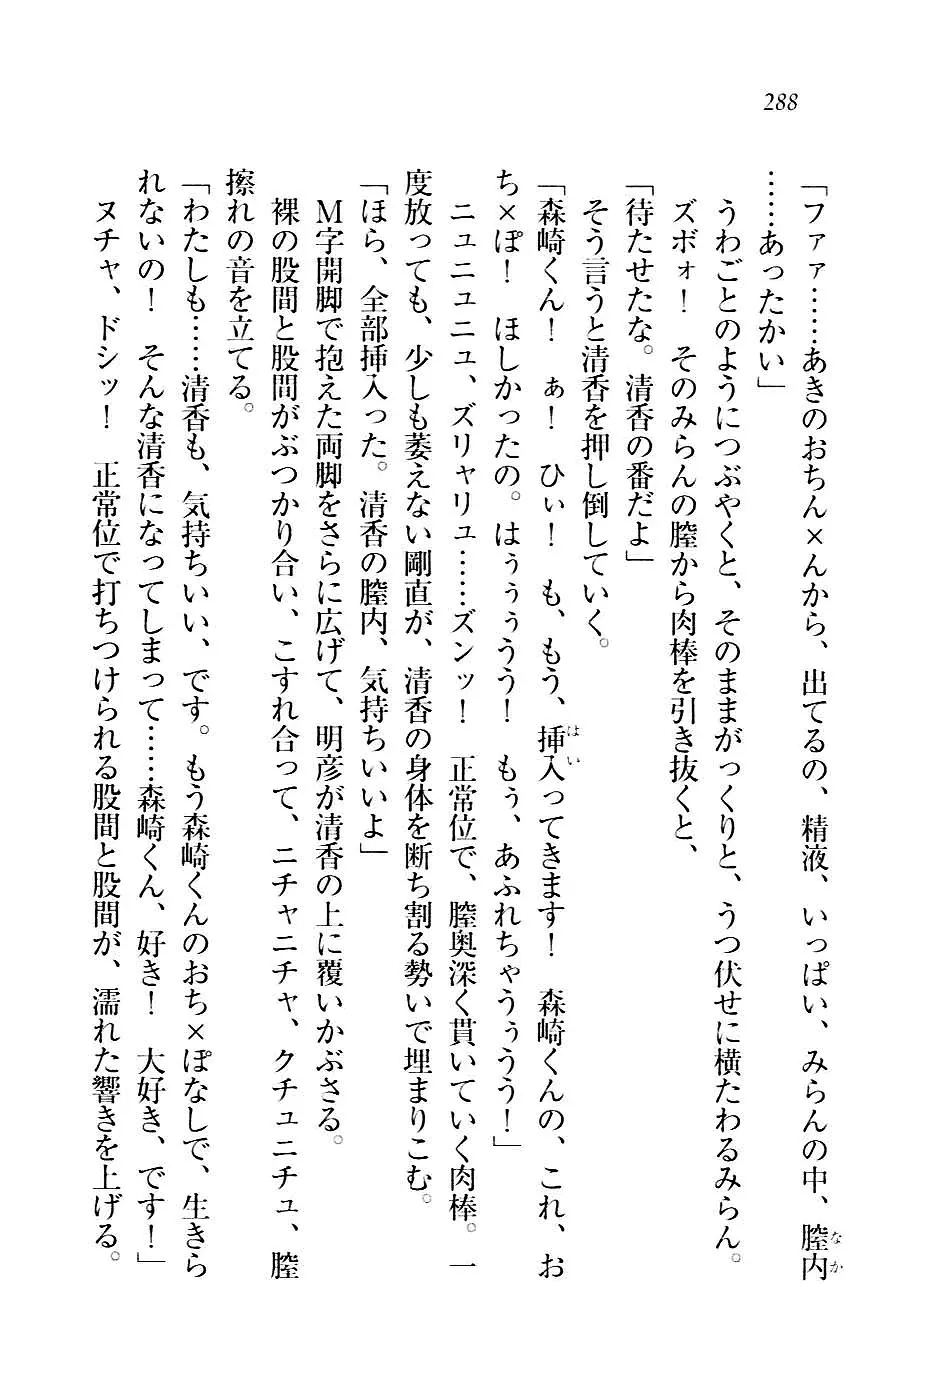 288
「ファァ……あきのおちん×んから、出てるの、精液、いっぱい、みらんの中、膣内なか
……あったかい」
うわごとのようにつぶやくと、そのままがっくりと、うつ伏せに横たわるみらん。
ズボォ！　そのみらんの膣から肉棒を引き抜くと、
「待たせたな。清香の番だよ」
そう言うと清香を押し倒していく。
「森崎くん！　ぁ！　ひぃ！　も、もう、挿入はいってきます！　森崎くんの、これ、お
ち×ぽ！　ほしかったの。はぅぅうう！　もぅ、あふれちゃうぅうう！」
ニュニュニュ、ズリャリュ……ズンッ！　正常位で、膣奥深く貫いていく肉棒。一
度放っても、少しも萎えない剛直が、清香の身体を断ち割る勢いで埋まりこむ。
「ほら、全部挿入った。清香の膣内、気持ちいいよ」
Ｍ字開脚で抱えた両脚をさらに広げて、明彦が清香の上に覆いかぶさる。
裸の股間と股間がぶつかり合い、こすれ合って、ニチャニチャ、クチュニチュ、膣
擦れの音を立てる。
「わたしも……清香も、気持ちいい、です。もう森崎くんのおち×ぽなしで、生きら
れないの！　そんな清香になってしまって……森崎くん、好き！　大好き、です！」
ヌチャ、ドシッ！　正常位で打ちつけられる股間と股間が、濡れた響きを上げる。